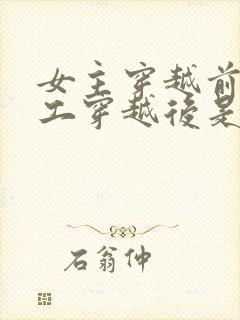 女主穿越前
工穿越後是
石翁仲